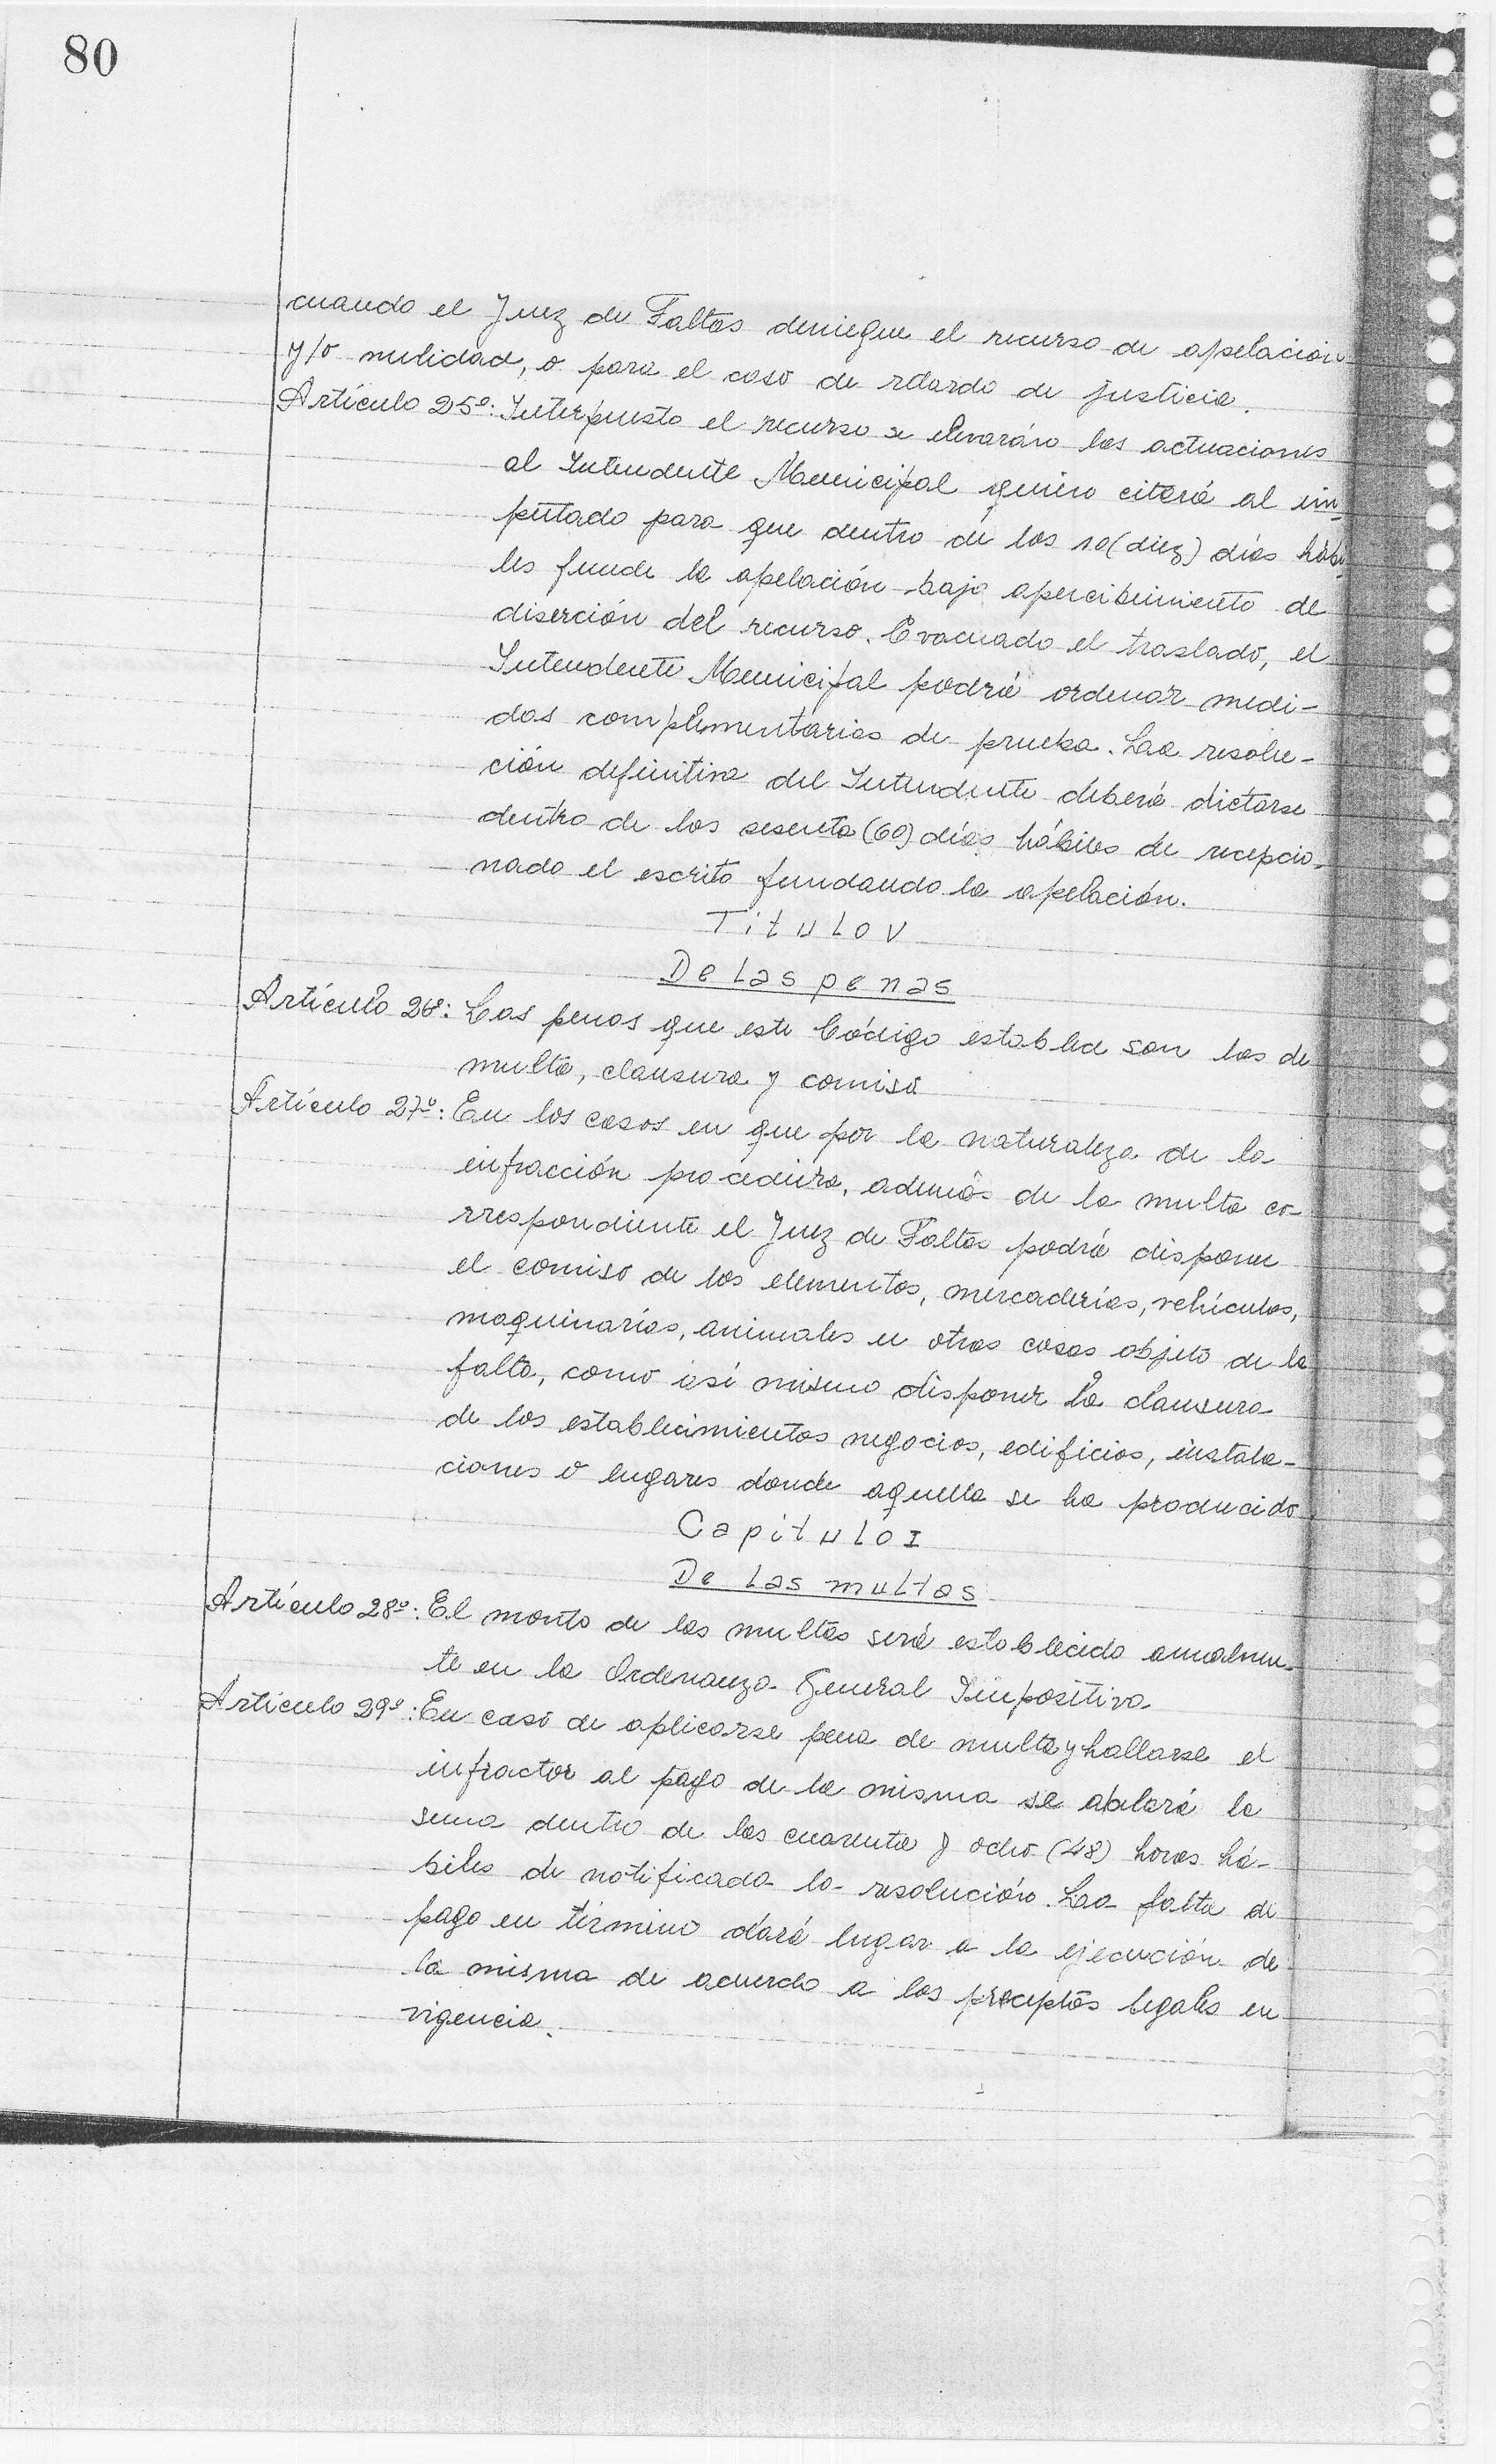 80
cuando el Juez de Faltas deniegue el recurso de apelación
y/o nulidad, o para el caso de retardo de justicia.
Artículo 25º: Interpuesto el recurso se elevarán las actuaciones
al Intendente Municipal quien citará al im-
putado para que dentro de los 10 (diez) días hábi-
les funde la apelación bajo apercibimiento de
diserción del recurso. Evacuado el traslado, el
Intendente Municipal podrá ordenar medi-
das complementarias de prueba. La resolu-
ción definitiva del Intendente deberá dictarse
dentro de los sesenta (60) días hábiles de recepcio-
nado el escrito fundando la apelación.
Título V
De las penas
Artículo 26º: Las penas que este Código establece son las de
multa, clausura y comiso
Artículo 27º: En los casos en que por la naturaleza de la
infracción procediera, además de la multa co-
rrespondiente el Juez de Faltas podrá disponer
el comiso de los elementos, mercaderías, vehículos,
maquinarias, animales u otras cosas objeto de la
falta, como así mismo disponer la clausura
de los establecimientos negocios, edificios, instala-
ciones o lugares donde aquella se ha producido
Capítulo I
De las multas
Artículo 28º: El monto de las multas será establecido anualmen-
te en la Ordenanza General Impositiva
Artículo 29º: En caso de aplicarse pena de multa y hallarse el
infractor al pago de la misma se abalará la
suma dentro de las cuarenta y ocho (48) horas há-
biles de notificada la resolución. La falta de
pago en término dará lugar a la ejecución de
la misma de acuerdo a los preceptos legales en
vigencia.